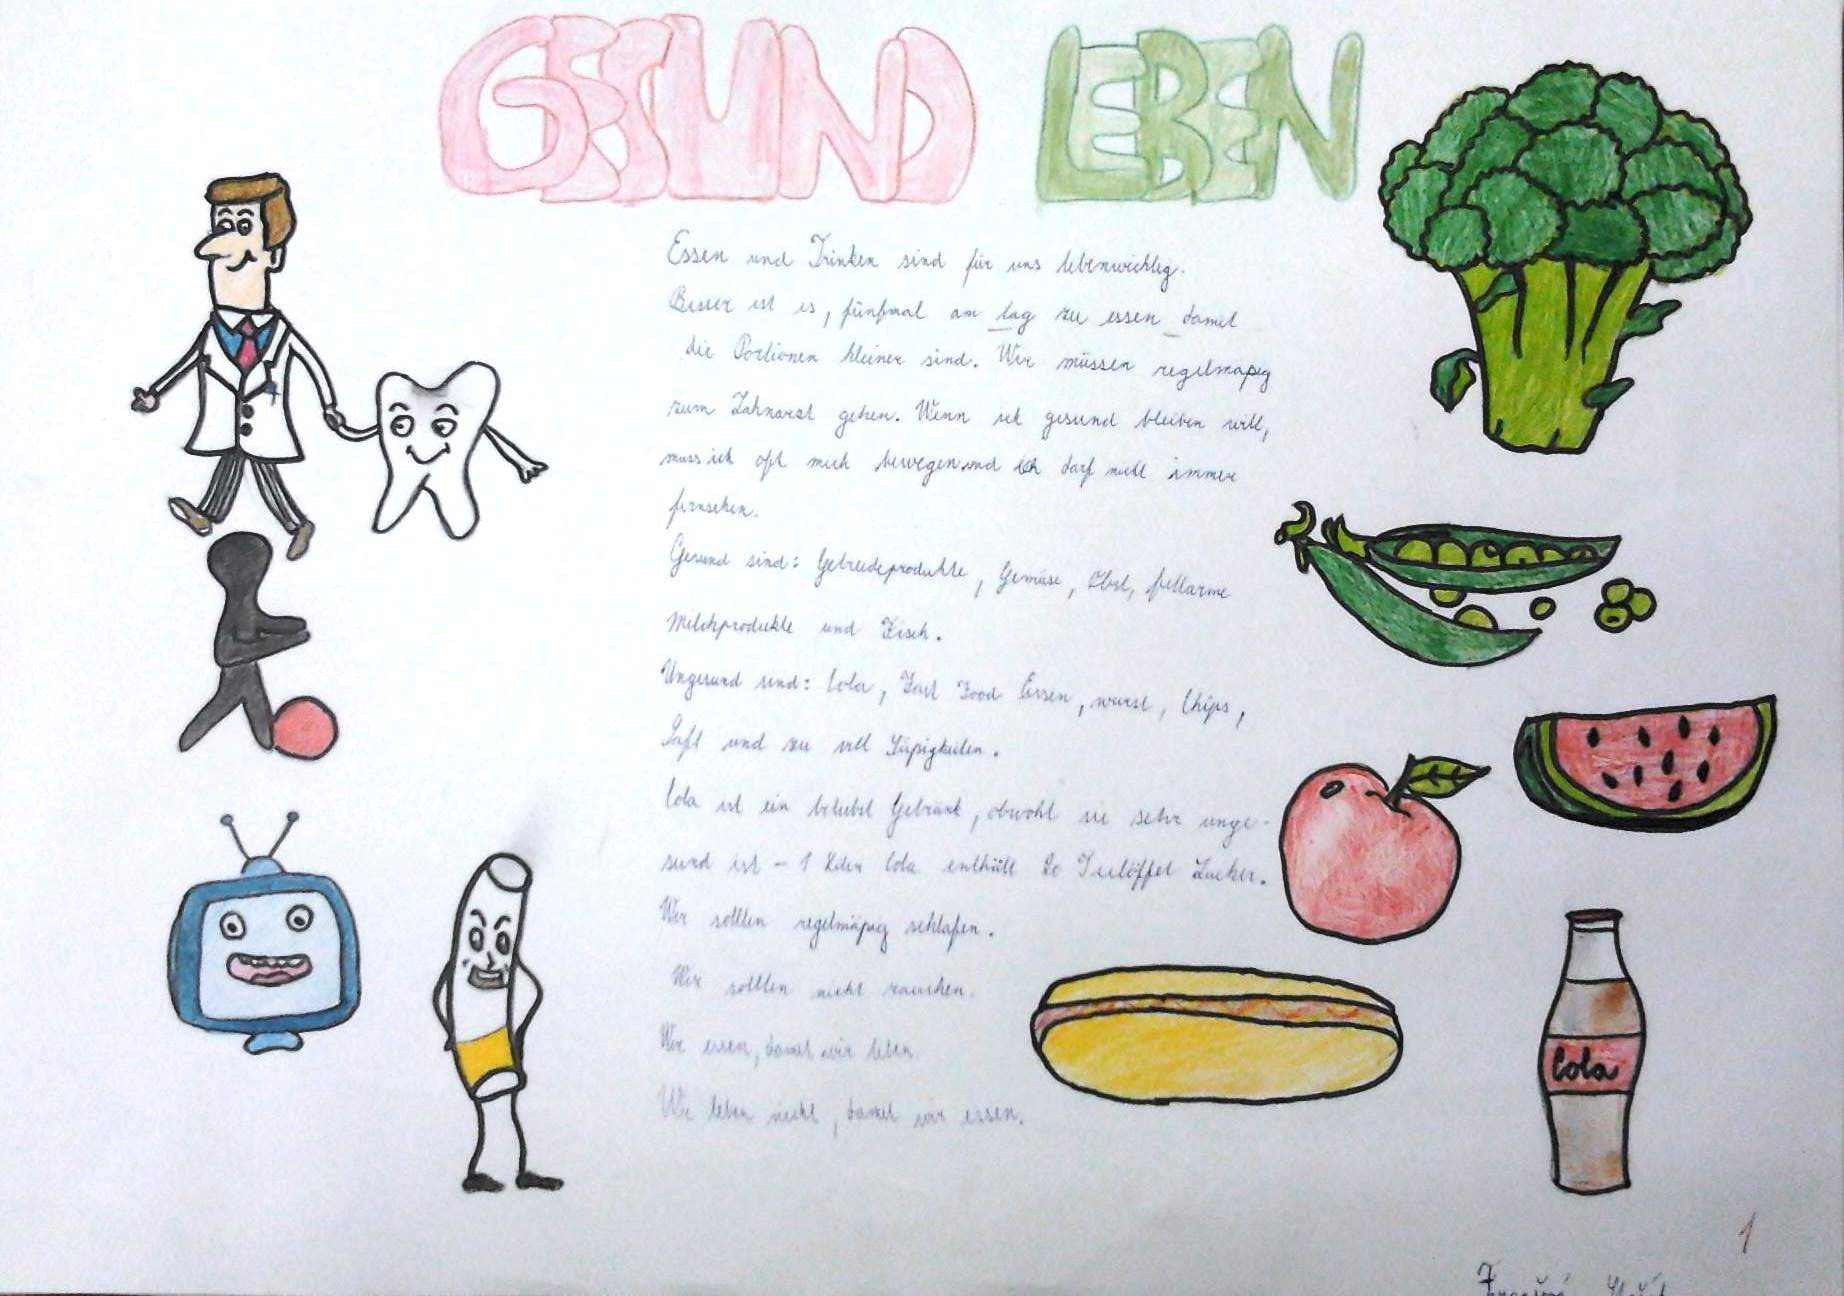 GESUND LEBEN
Essen und Trinken sind für uns lebenwichtig.
Besser ist es, fünfmal am tag zu essen damit
die Portionen kleiner sind. Wir müssen regelmäßig
zum Zahnarzt gehen. Wenn ich gesund bleiben will,
muss ich oft mich bewegen und ich darf nicht immer
fernsehen.
Gesund sind: Getreideprodukte, Gemüse, Obst, fettarme
Milchprodukte und Fisch.
Ungesund sind: Cola, Fast Food Essen, wurst, Chips,
Saft und zu viel Süßigkeiten.
Cola ist ein beliebt Getränk, obwohl sie sehr unge-
sund ist - 1 Liter Cola enthält 20 Teelöffel Zucker.
Wir sollten regelmäßig schlafen.
Wir sollten nicht rauchen.
Wir essen, damit wir leben.
Wir leben nicht, damit wir essen.
Cola
1